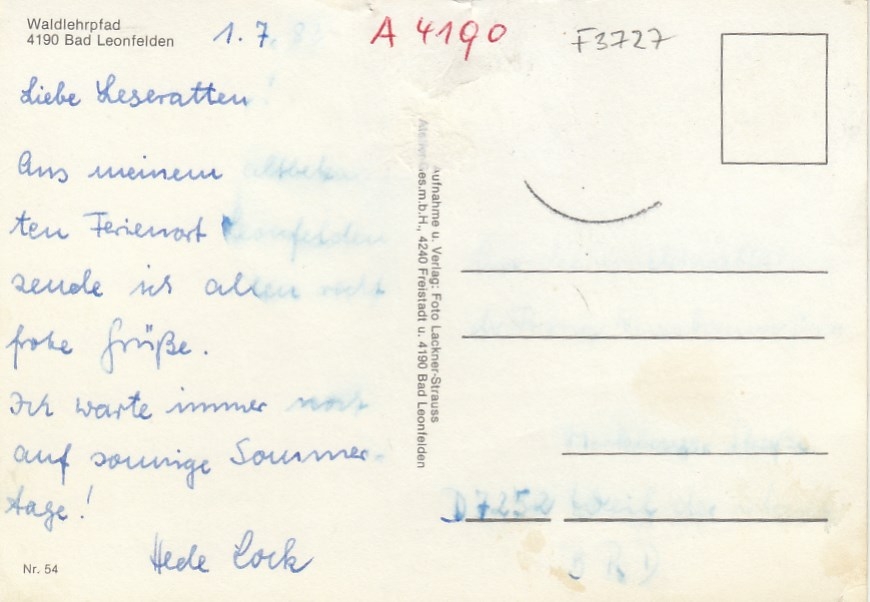 Waldlehrpfad
4190 Bad Leonfelden
1.7.
A 4190
F3727
Liebe Leseratten!
Aus meinem
ten Ferienort Leonfelden
sende ich allen recht
frohe Grüße.
Ich warte immer noch
auf sonnige Sommer-
tage!
Hede Lock
Nr. 54
Aufnahme u. Verlag: Foto Lackner-Strauss
Ges.m.b.H., 4240 Freistadt u. 4190 Bad Leonfelden
D 7252 Weil der Stadt
BRD